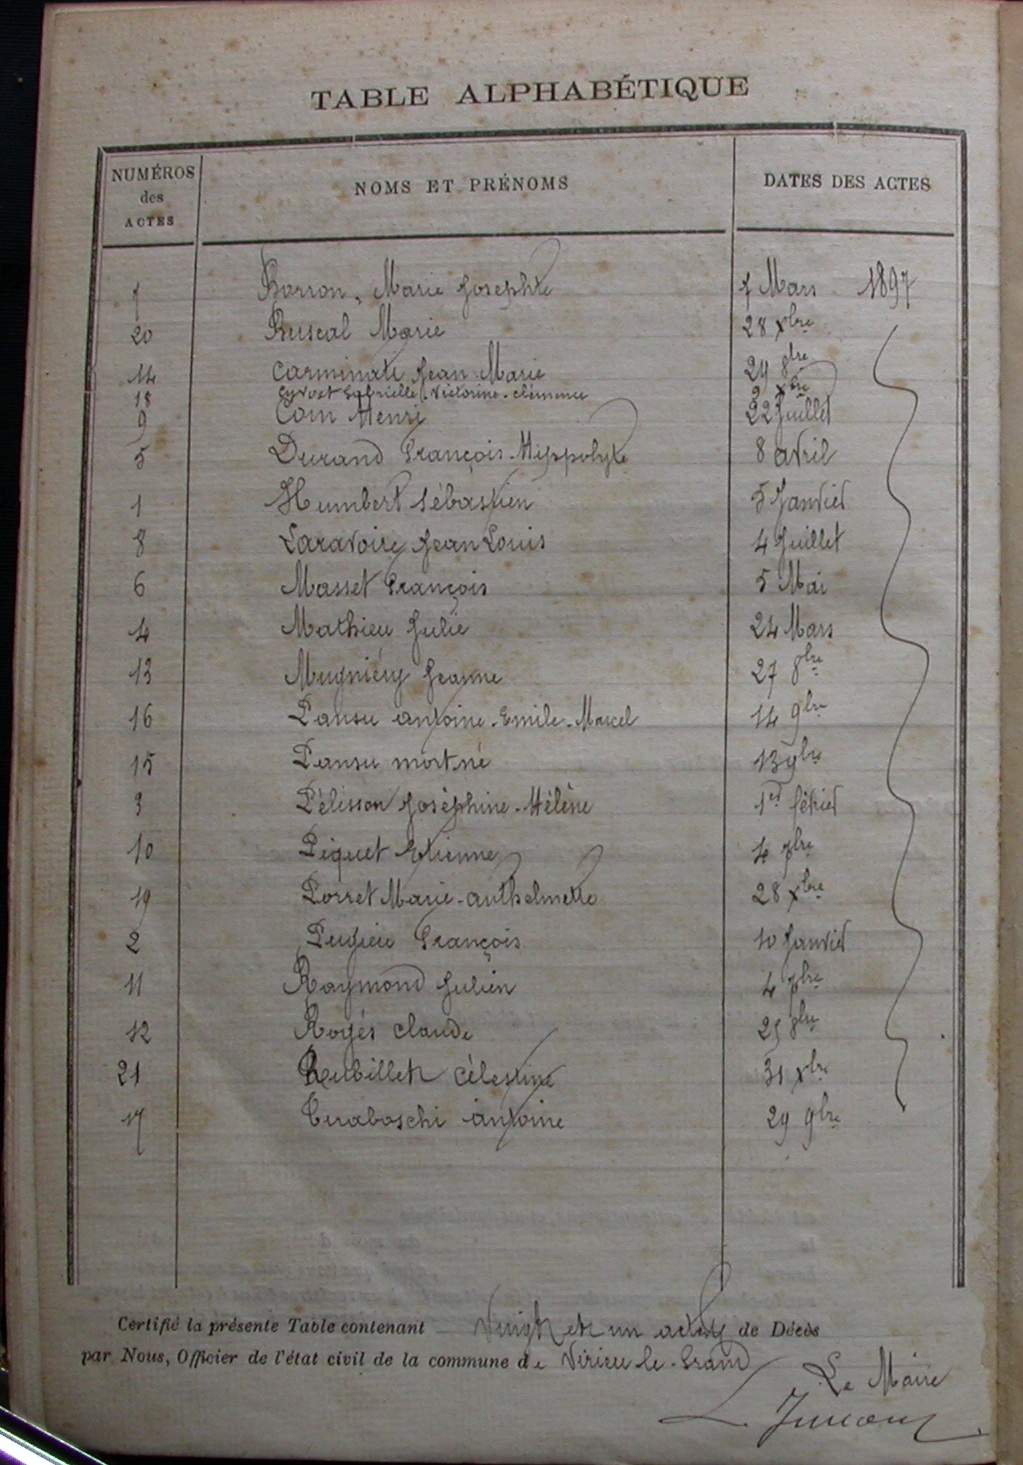 TABLE ALPHABÉTIQUE
NUMÉROS des ACTES
NOMS ET PRÉNOMS
DATES DES ACTES
7 Borron, Marie Josephte 7 Mars 1897
20 Buscal Marie 28 Xbre
14 Carminati Jean Marie 29 8bre
18 Gabrielle Victorine-Clémence Xbre
9 Henri 22 Juillet
5 Durand François-Hippolyte 8 avril
1 Humbert Sébastien 5 Janvier
8 Laravoire Jean Louis 4 Juillet
6 Masset François 5 Mai
4 Mathieu Julie 24 Mars
13 Mugniéry Jeanne 27 8bre
16 Pansu antoine-Emile-Marcel 14 9bre
15 Pansu mort né 13 9bre
3 Pélisson Joséphine-Hélène 1er février
10 Piquet Etienne 4 7bre
19 Porret Marie-anthelmette 28 Xbre
2 Pugieu François 10 Janvier
11 Raymond Julien 4 7bre
12 Claude 25 8bre
21 Rubillet Célestine 31 Xbre
17 Tiraboschi antoine 29 9bre
Certifié la présente Table contenant Vingt et un actes de Décès
par Nous, Officier de l'état civil de la commune de Virieu le-Grand
Le Maire